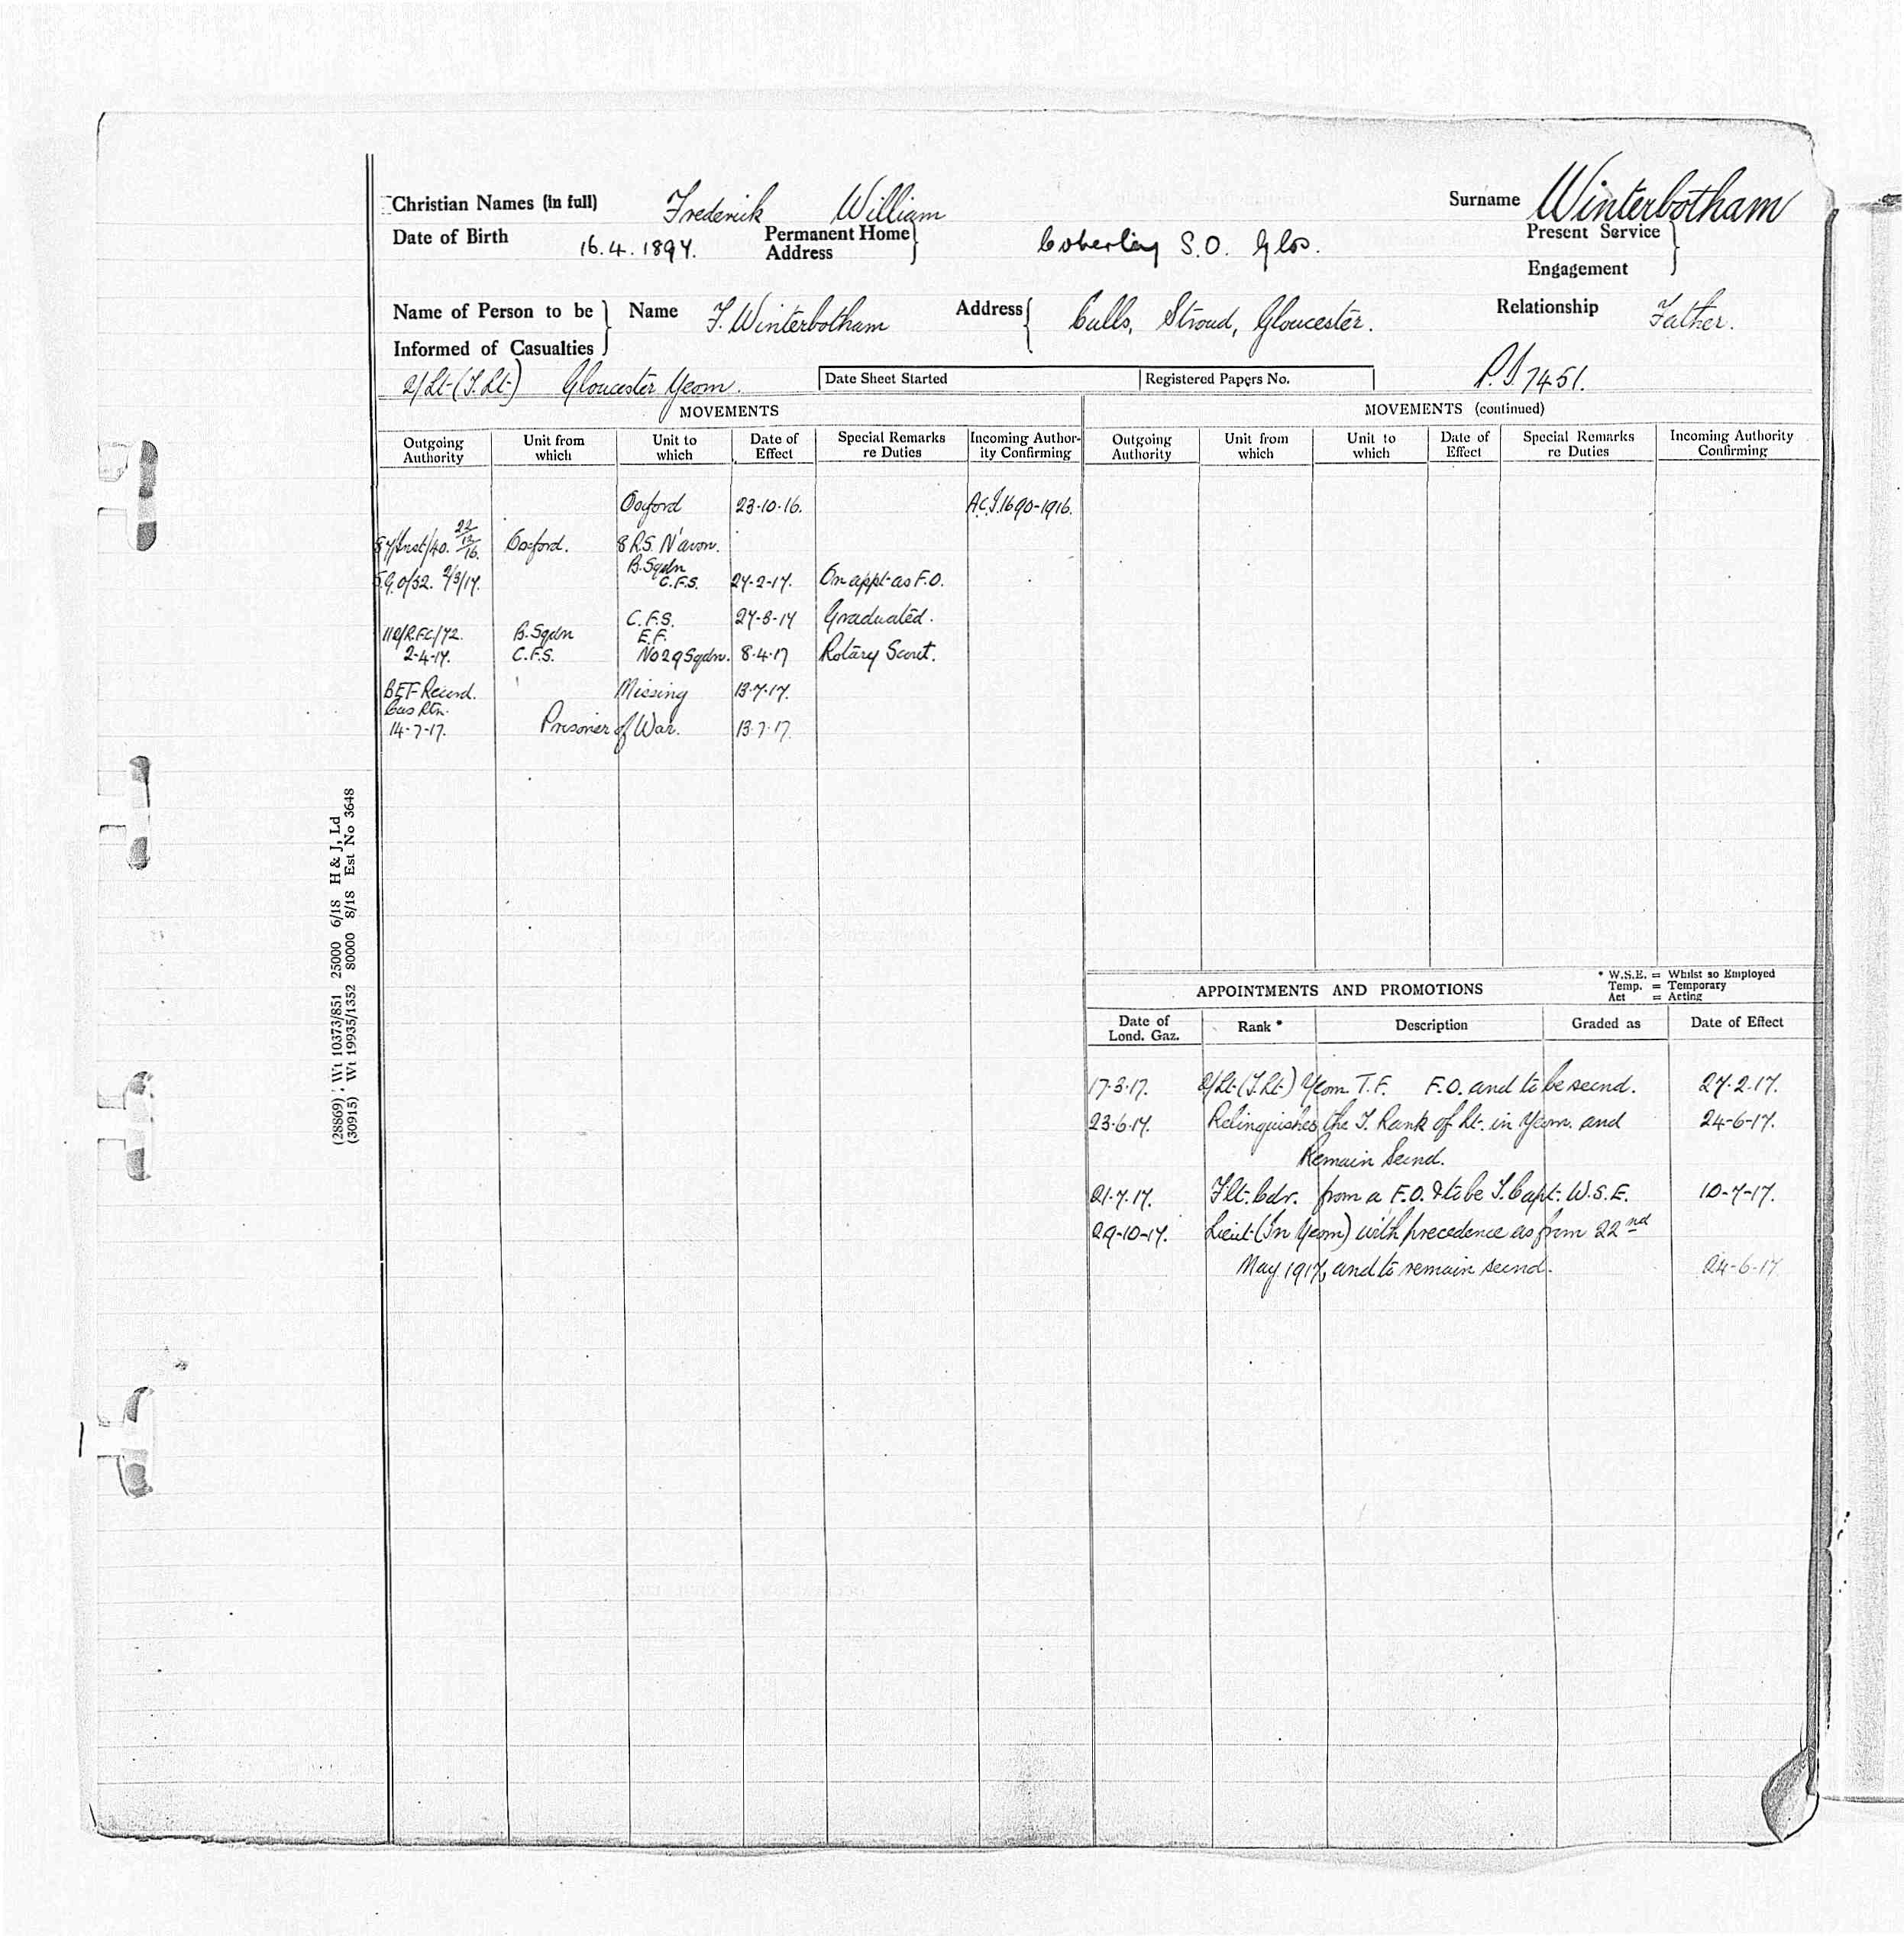 Christian Names (in full) Frederick William Surname Winterbotham
Date of Birth 16.4.1897. Permanent Home Address } Coberley S.O. Glos. Present Service Engagement }
Name of Person to be Informed of Casualties } Name F. Winterbotham Address { Culls, Stroud, Gloucester. Relationship Father.
2/Lt (T.Lt) Gloucester Yeom. Date Sheet Started Registered Papers No. P.I. 7451.
MOVEMENTS
Outgoing Authority Unit from which Unit to which Date of Effect Special Remarks re Duties Incoming Author-ity Confirming
Oxford 23-10-16. A.C.I. 1690-1916.
87/Inst/40. 22/12/16. Oxford. 8 R.S. N'avon.
B. Sqdn
59.0/52. 2/3/17. C.F.S. 27-2-17. On appt as F.O.
C.F.S. 27-3-17 Graduated.
110/R.F.C/72. B. Sqdn E.F.
2-4-17. C.F.S. No 29 Sqdn. 8-4-17 Rotary Scout.
BEF Record. Missing 13-7-17.
Cas Rtn.
14-7-17. Prisoner of War. 13-7-17.
MOVEMENTS (continued)
Outgoing Authority Unit from which Unit to which Date of Effect Special Remarks re Duties Incoming Authority Confirming
APPOINTMENTS AND PROMOTIONS
* W.S.E. = Whilst so Employed
Temp. = Temporary
Act = Acting
Date of Lond. Gaz. Rank * Description Graded as Date of Effect
17-3-17. 2/Lt (T.Lt) Yeom. T.F. F.O. and to be secnd. 27-2-17.
23-6-17. Relinquishes the T. Rank of Lt. in Yeom. and 24-6-17.
Remain Secnd.
21-7-17. Flt. Cdr. from a F.O. & to be T. Capt. W.S.E. 10-7-17.
29-10-17. Lieut (In Yeom) with precedence as from 22nd
May 1917, and to remain secnd. 24-6-17
(28869) Wt 10373/851 25000 6/18 H & J, Ld
(30915) Wt 19935/1352 80000 8/18 Est No 3648